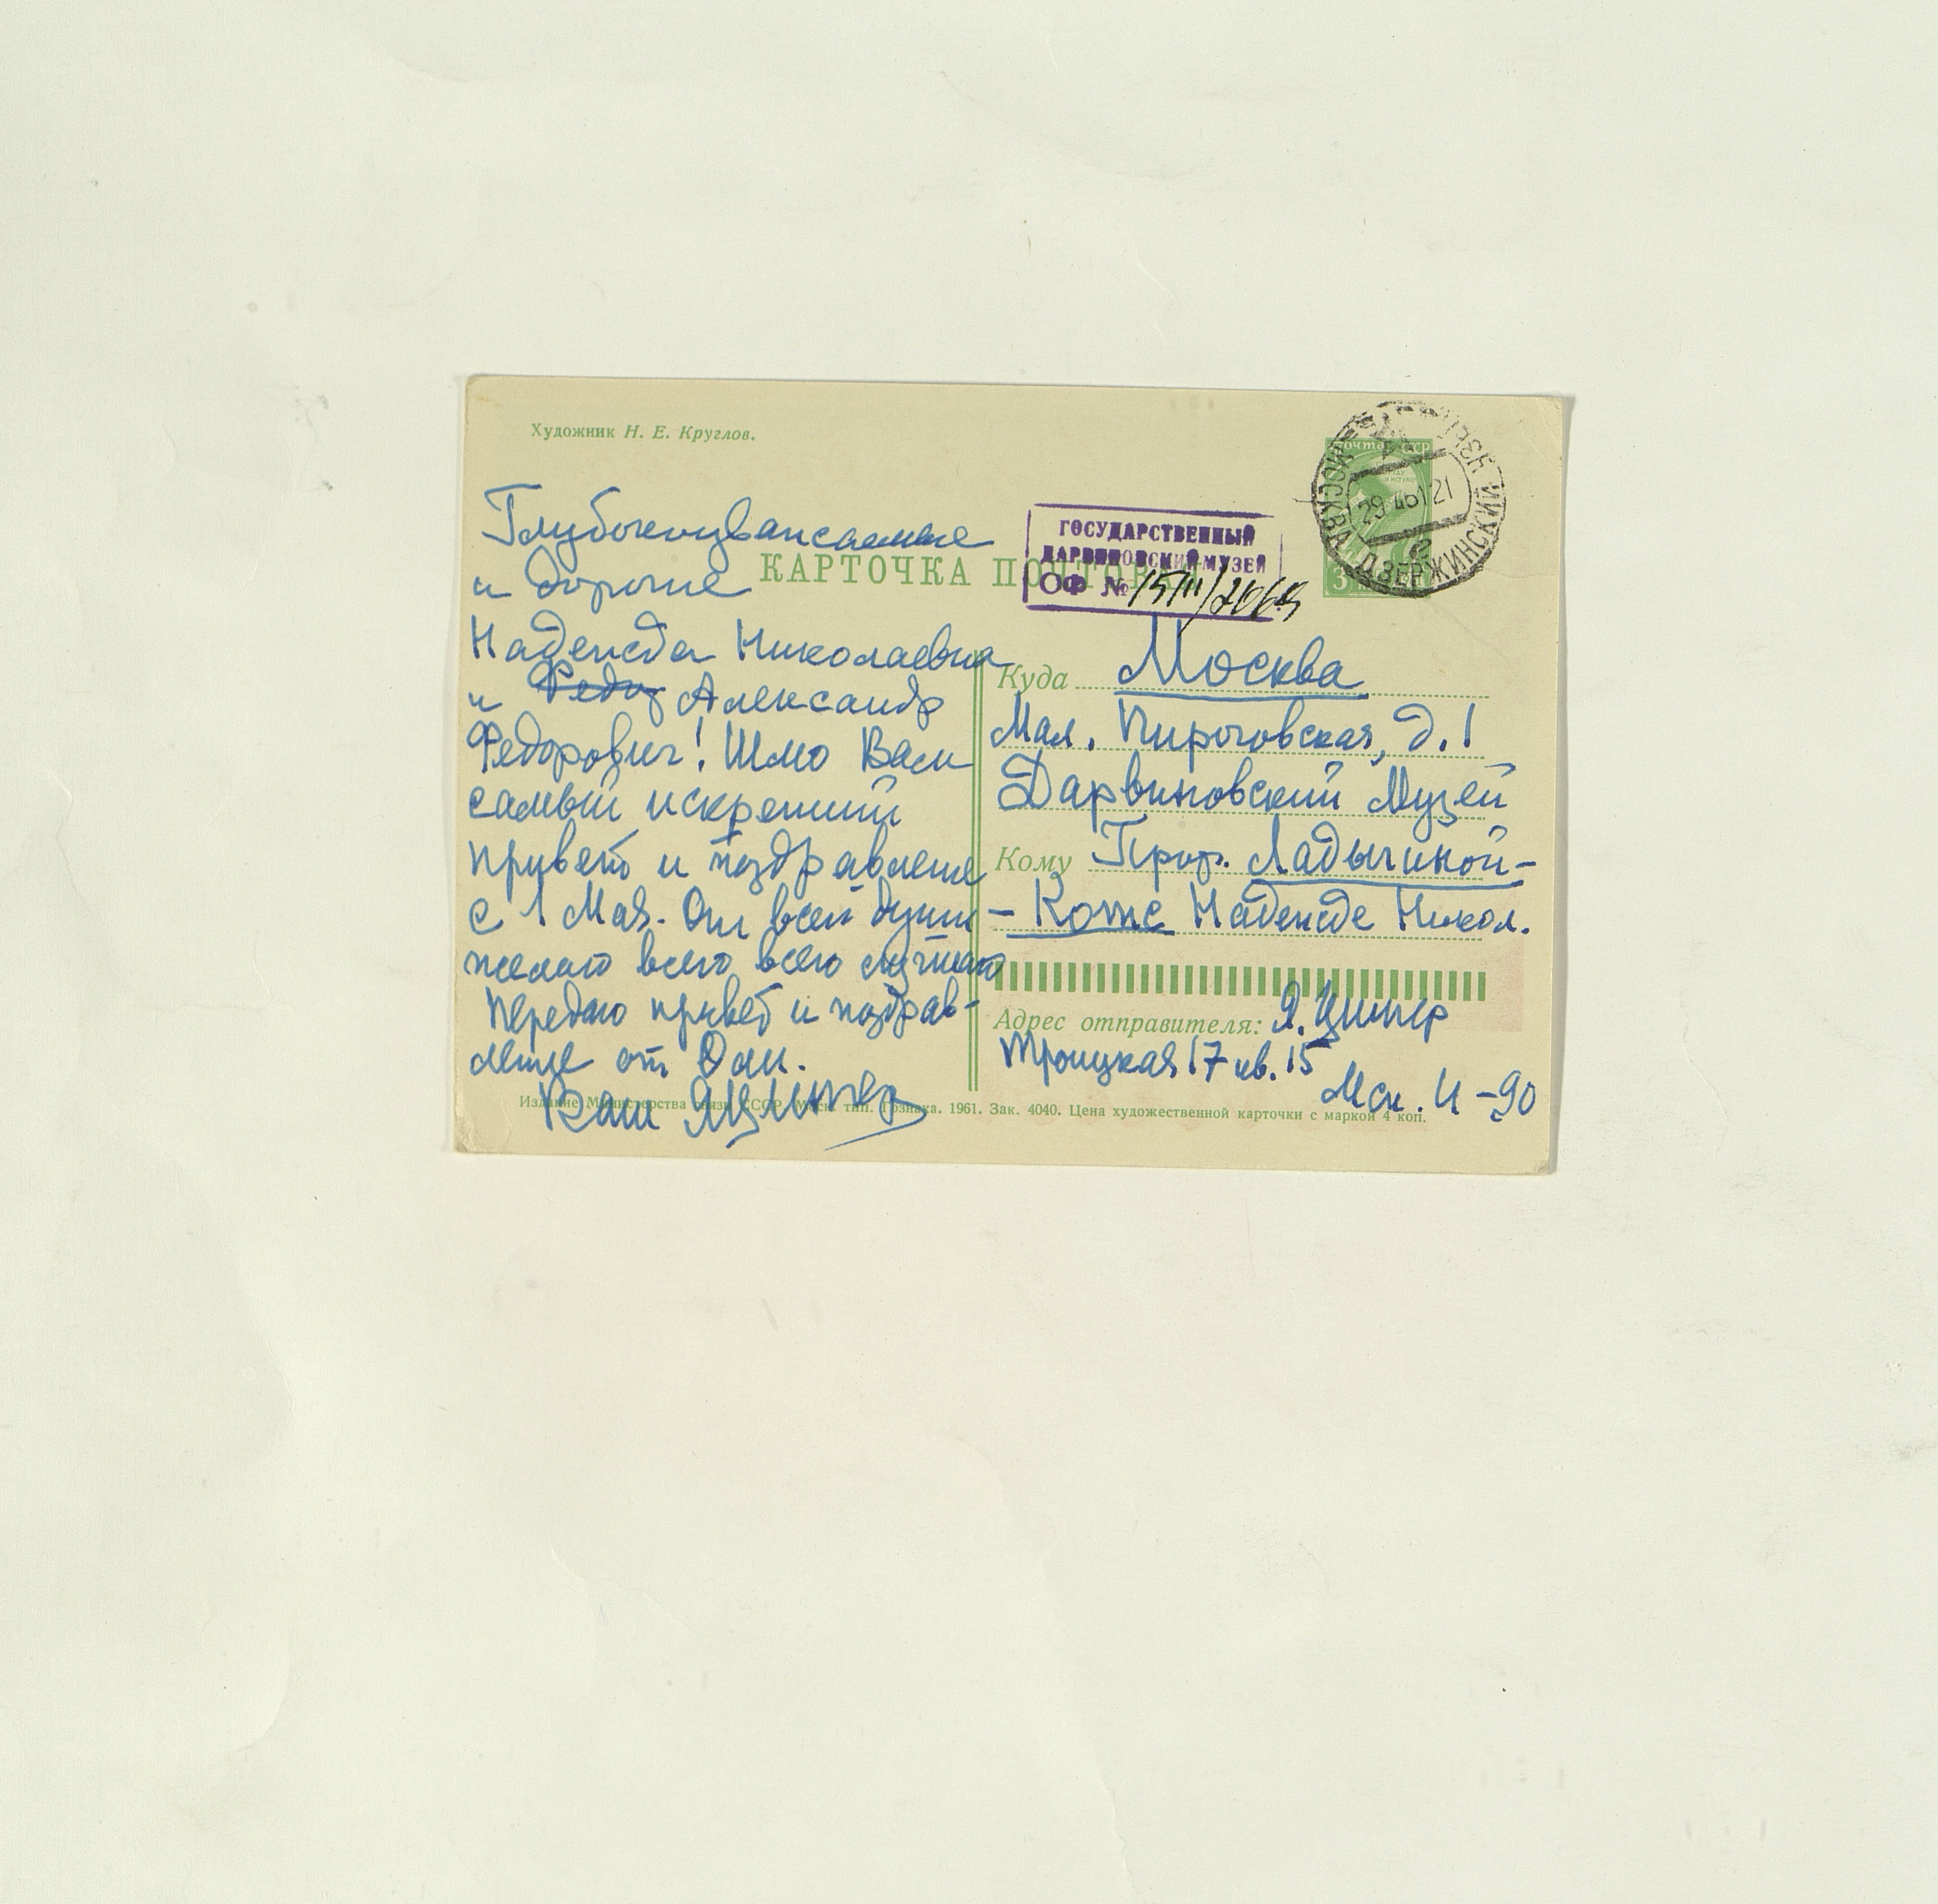 Художник Н. Е. Круглов.
Глубокоуважаемые
и дорогие
Надежда Николаевна
и Федо Александр
Федорович! Шлю Вам
самый искренний
привет и поздравление
с 1 Мая. От всей души
желаю всего всего лучшего
Передаю привет и поздрав-
ление от Оли.
Ваш ЯЦингер
КАРТОЧКА ПОЧТОВАЯ
ГОСУДАРСТВЕННЫЙ
ДАРВИНОВСКИЙ МУЗЕЙ
ОФ №15111/2669
ПОЧТА СССР
МОСКВА ДЗЕРЖИНСКИЙ
29 4 61 21
Куда Москва
Мал. Пироговская, д. 1
Дарвиновский Музей
Кому Проф. Ладыгиной-
- Котс Надежде Никол.
Адрес отправителя: Я. Цингер
Троицкая 17 кв. 15
Мск. И-90
Издание Министерства связи СССР. Моск. тип. Гознака. 1961. Зак. 4040. Цена художественной карточки с маркой 4 коп.